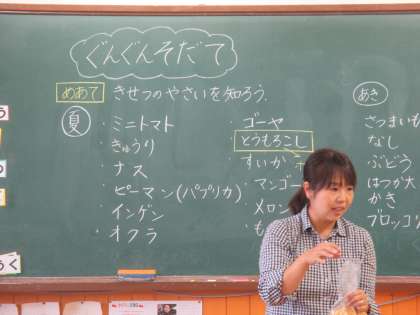 ぐんぐんそだて
めあて きせつのやさいを知ろう.
夏
・ミニトマト
・きゅうり
・ナス
・ピーマン(パプリカ)
・インゲン
・オクラ
・ゴーヤ
とうもろこし
・すいか
・マンゴー
・メロン
・も
あき
さつまいも
なし
ぶどう
はつが大
かき
ブロッコ
う
つ
うく